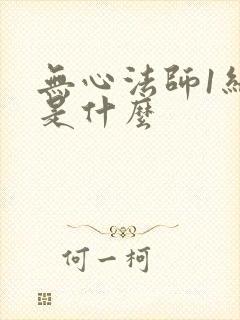 無心法師1結
是什麼
何一柯